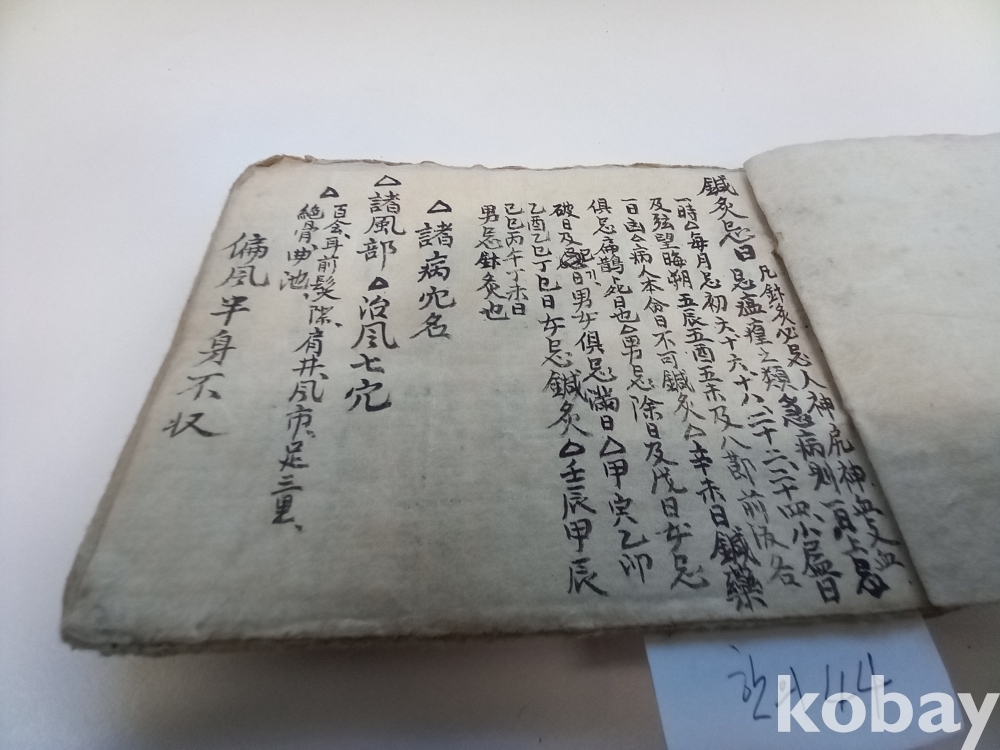 鍼灸忌日 凡針灸必忌人神尻神血支血
忌瘟㾮之類急病則一日上忌
一時△每月忌初六、十六、十八、二十二、二十四、小盡日
及弦望晦朔五辰五酉五未及八節前後各
一日凶△病人本命日不可鍼灸△辛未日鍼藥
俱忌扁鵲死日也△男忌除日及戊日女忌
破日及己日男女俱忌滿日△甲寅乙卯
乙酉乙巳丁巳日女忌鍼灸△壬辰甲辰
己巳丙午丁未日
男忌針灸也
△諸病穴名
△諸風部△治風七穴
△百会、耳前髮際、肩井、風市、足三里、
絶骨、曲池、
偏風半身不収
44
kobay